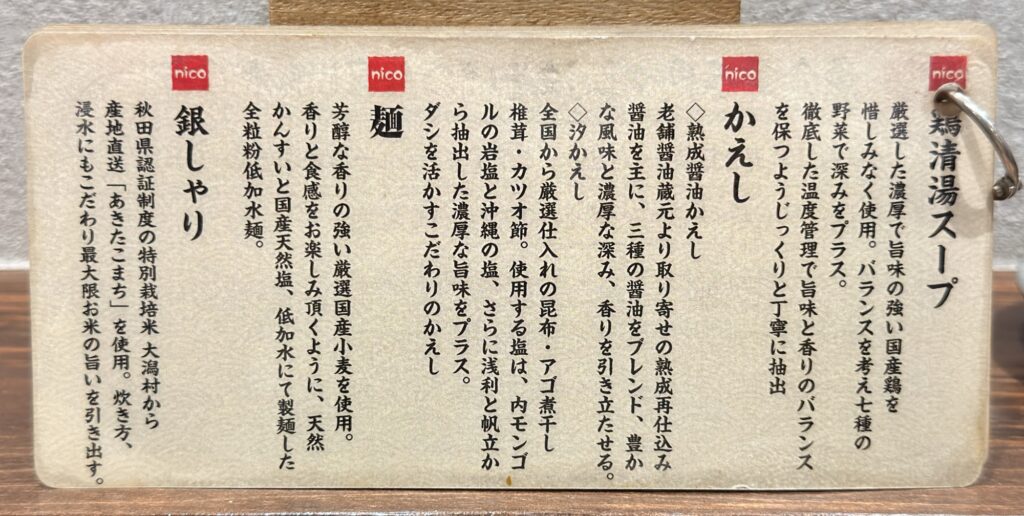 nico
鶏清湯スープ
厳選した濃厚で旨味の強い国産鶏を
惜しみなく使用。バランスを考え七種の
野菜で深みをプラス。
徹底した温度管理で旨味と香りのバランス
を保つようじっくりと丁寧に抽出
nico
かえし
◇熟成醤油かえし
老舗醤油蔵元より取り寄せの熟成再仕込み
醤油を主に、三種の醤油をブレンド、豊か
な風味と濃厚な深み、香りを引き立たせる。
◇汐かえし
全国から厳選仕入れの昆布・アゴ煮干し
椎茸・カツオ節。使用する塩は、内モンゴ
ルの岩塩と沖縄の塩、さらに浅利と帆立か
ら抽出した濃厚な旨味をプラス。
ダシを活かすこだわりのかえし
nico
麺
芳醇な香りの強い厳選国産小麦を使用。
香りと食感をお楽しみ頂くように、天然
かんすいと国産天然塩、低加水にて製麺した
全粒粉低加水麺。
nico
銀しゃり
秋田県認証制度の特別栽培米 大潟村から
産地直送「あきたこまち」を使用。炊き方、
浸水にもこだわり最大限お米の旨いを引き出す。